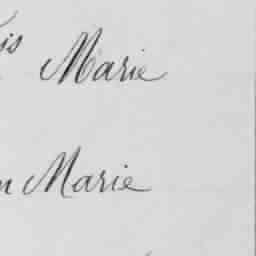 is Marie
n Marie